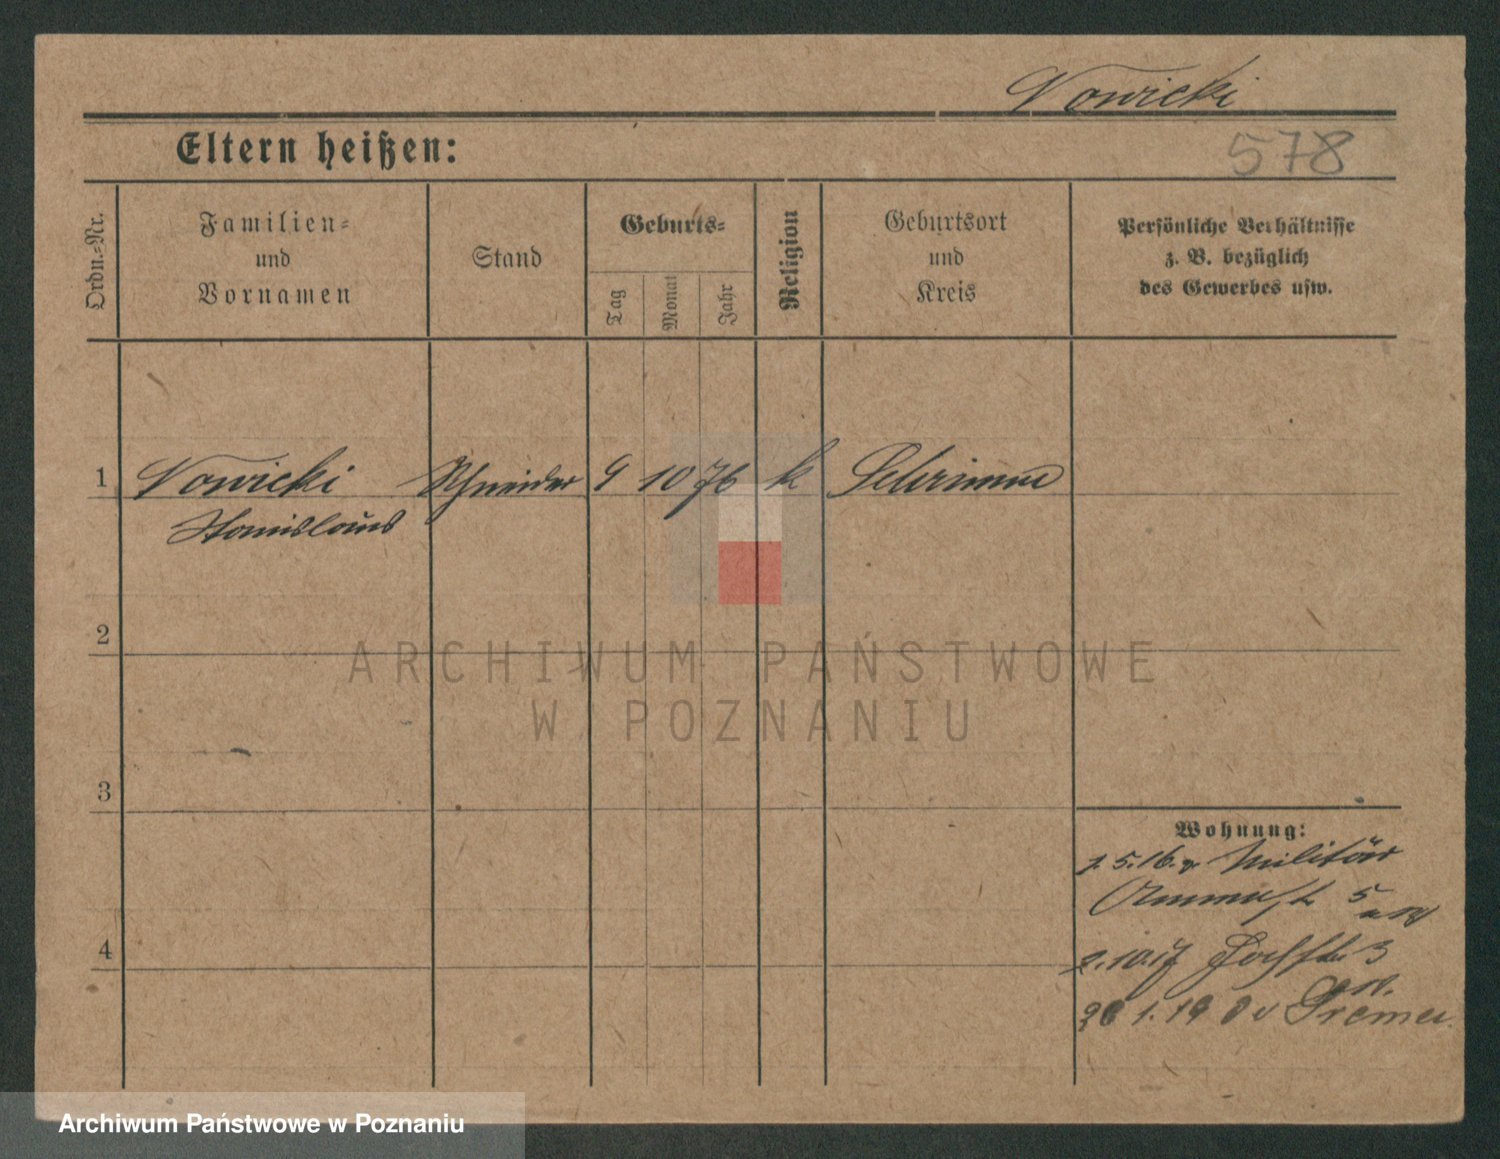 Nowicki
Eltern heißen:
578
Ordn.-Nr.
Familien-
und
Vornamen
Stand
Geburts-
Tag
Monat
Jahr
Religion
Geburtsort
und
Kreis
Persönliche Verhältnisse
z. B. bezüglich
des Gewerbes usw.
1 Nowicki Schneider 9 10 76 k Schrimm
Stanislaus
2
ARCHIWUM PAŃSTWOWE
W POZNANIU
3
Wohnung:
1.5.16. v Militär
5
4
2.10.17 3
1.19 v Bremen
Archiwum Państwowe w Poznaniu